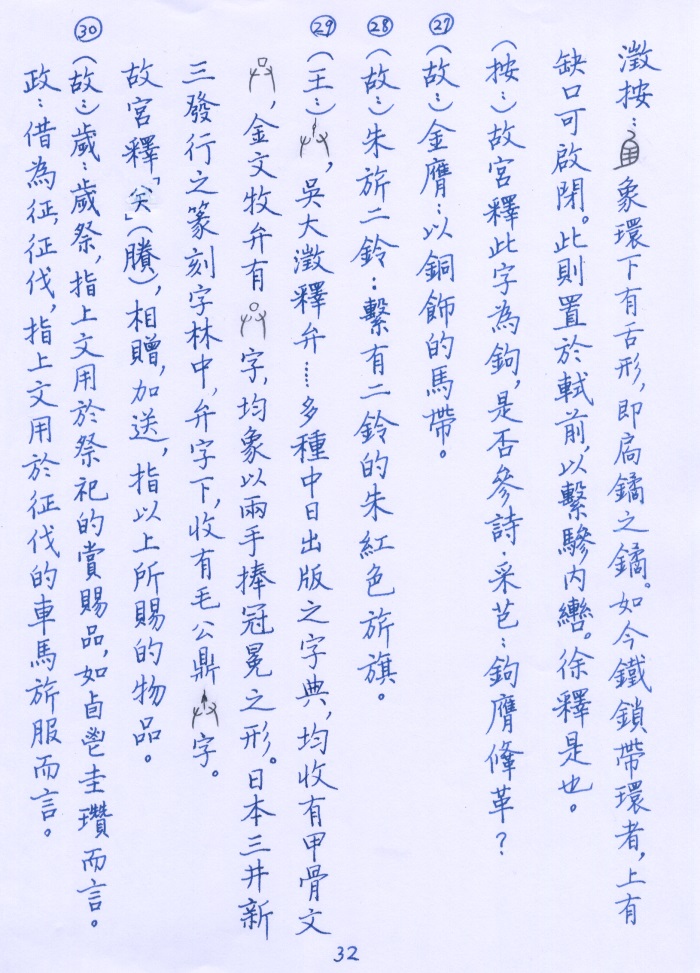 澂按：象環下有舌形，即扃鐍之鐍。如今鐵鎖帶環者，上有
缺口可啟閉。此則置於軾前，以繫驂內轡。徐釋是也。
（按：）故宮釋此字為鉤，是否參詩．采芑：鉤膺鞗革？
㉗（故：）金膺：以銅飾的馬帶。
㉘（故：）朱旂二鈴：繫有二鈴的朱紅色旂旗。
㉙（王：），吳大澂釋弁……多種中日出版之字典，均收有甲骨文
，金文牧弁有字，均象以兩手捧冠冕之形。日本三井新
三發行之篆刻字林中，弁字下，收有毛公鼎字。
故宮釋「灷」（賸），相贈，加送，指以上所賜的物品。
㉚（故：）歲：歲祭，指上文用於祭祀的賞賜品，如卣鬯圭瓚而言。
政：借為征，征伐，指上文用於征伐的車馬旂服而言。
32